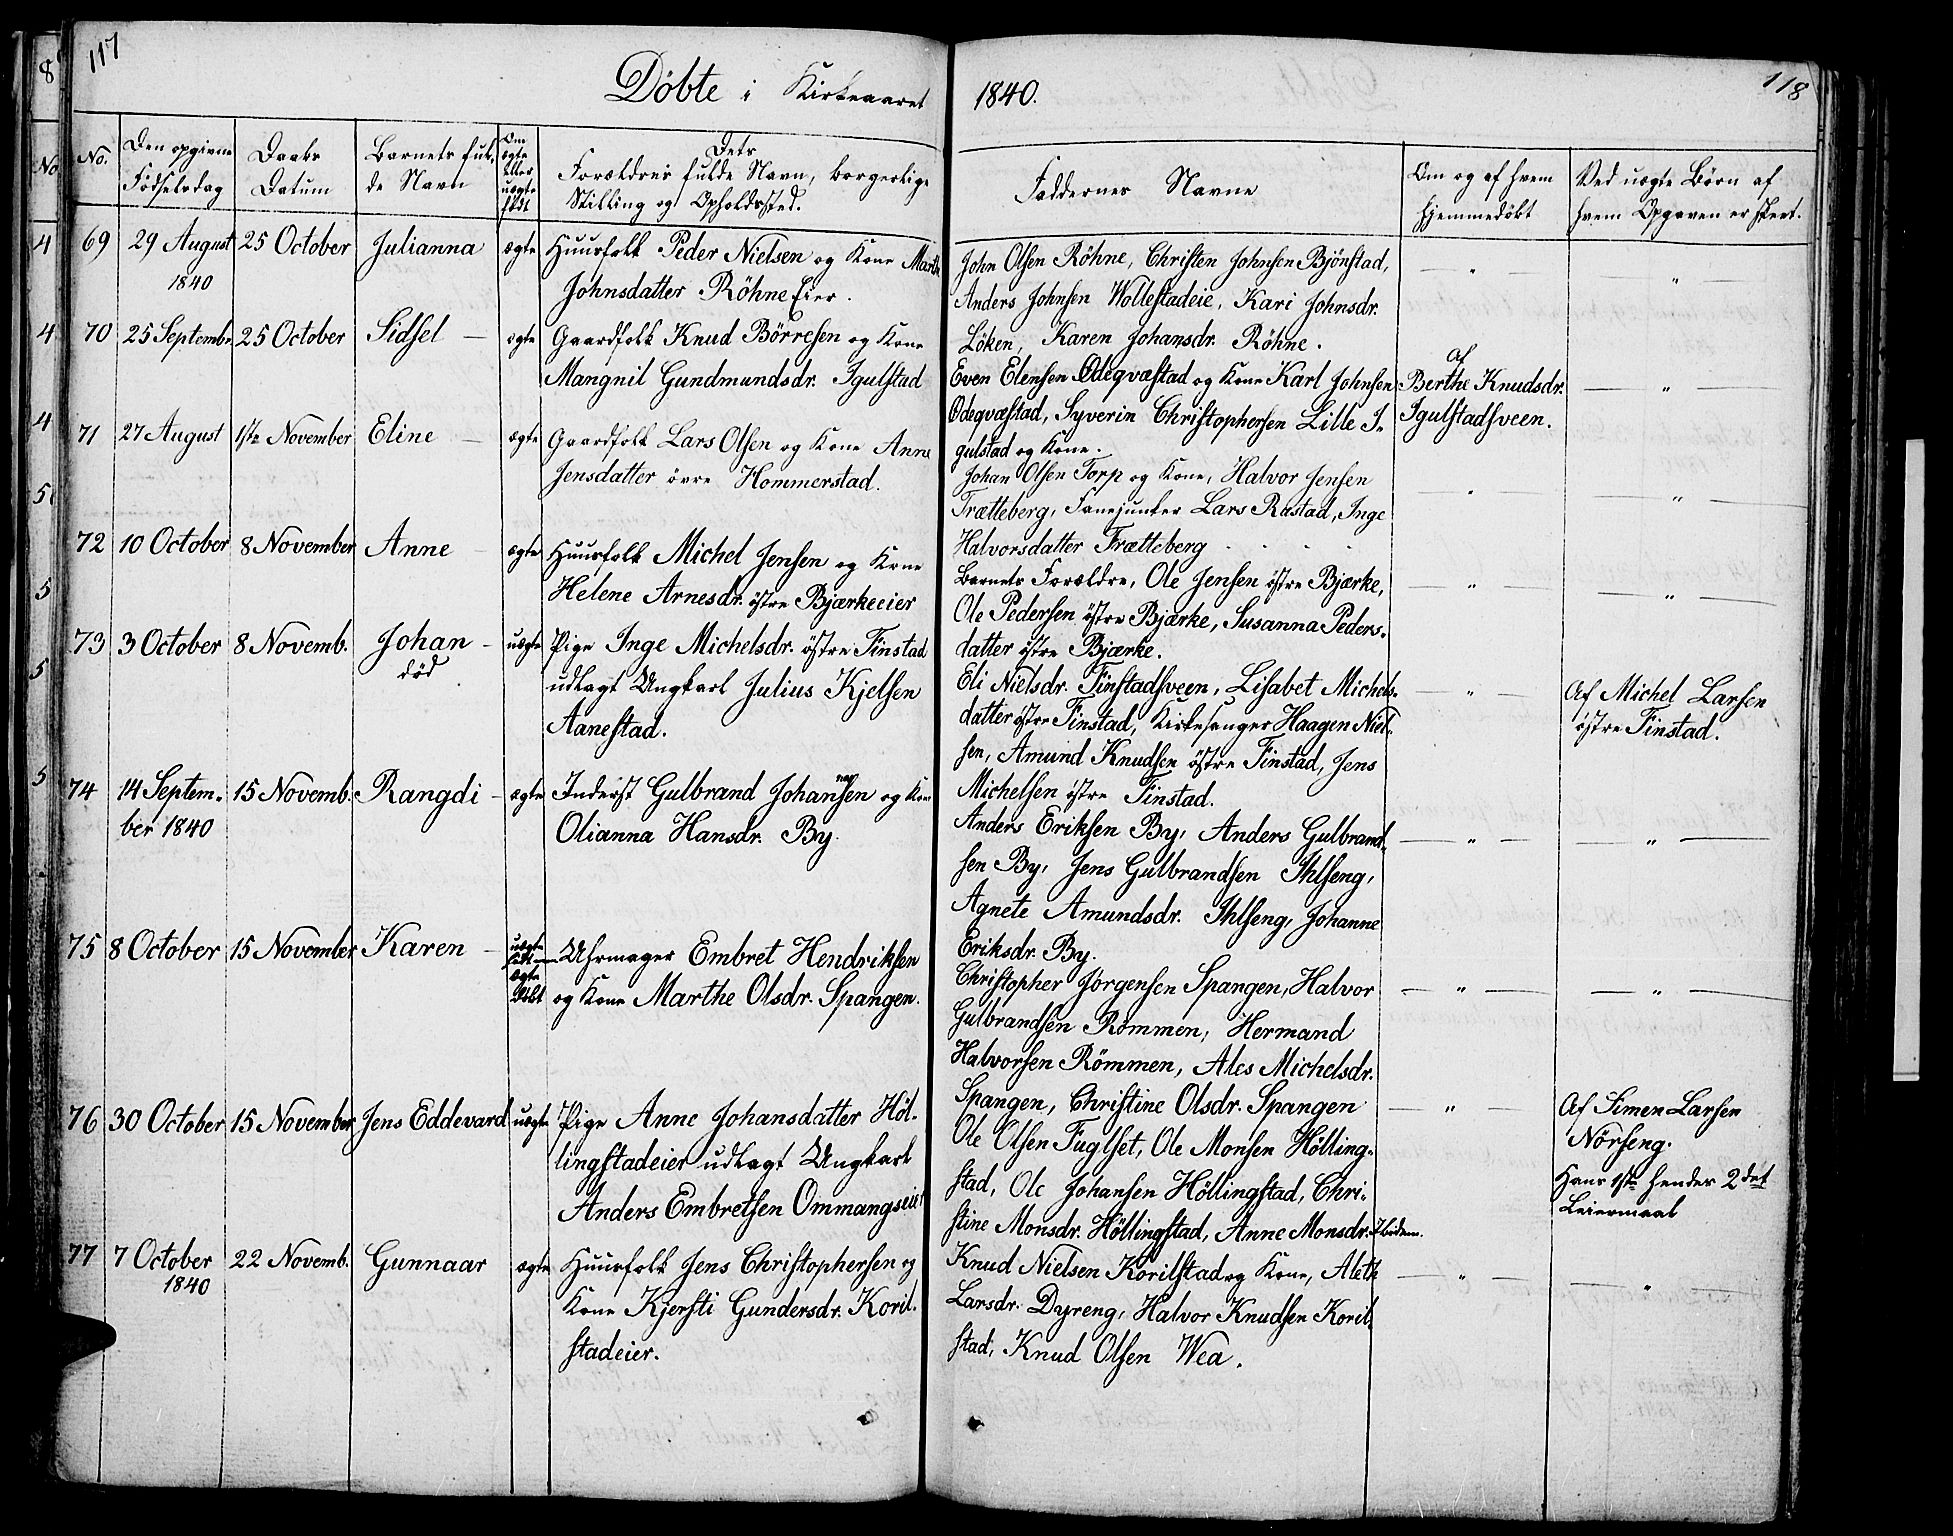 117
Döbte i Kirkeaaret
No.
Den opgivne Födselsdag
Daabs Datum
Barnets fulde Navn
Om ægte eller uægte födt
Dets Forældres fulde Navn, borgerlige Stilling og Opholdssted.
69 29 August 1840 25 October Julianna ægte Huusfolk Peder Nielsen og Kone Marthe
Johnsdatter Röhne Eier.
70 25 Septembr. 25 October Sidsel — ægte Gaardfolk Knud Börresen og Kone
Mangnil Gundmundsdr. Igulstad
71 27 August 1ste November Eline — ægte Gaardfolk Lars Olsen og Kone Anne
Jensdatter övre Hommerstad.
72 10 October 8 November Anne — ægte Huusfolk Michel Jensen og Kone
Helene Arnesdr. östre Bjærkeeier
73 3 October 8 Novemb. Johan - uægte Pige Inge Michelsdr. östre Finstad
död
udlagt Ungkarl Julius Kjelsen
Aanestad.
74 14 Septem- 15 Novemb. Rangdi - ægte Inderst Gulbrand Johansen og Kone
ber 1840
Olianna Hansdr. By.
75 8 October 15 November Karen - uægte födt ægte döbt Uhrmager Embret Hendriksen
og Kone Marthe Olsdr. Spangen.
76 30 October 15 November Jens Eddevard uægte Pige Anne Johansdatter Höl-
lingstadeier udlagt Ungkarl
Anders Embretsen Ommangseier
77 7 October 1840 22 Novemb. Gunnaar ægte Huusfolk Jens Christophersen og
Kone Kjersti Gundersdr. Koril-
stadeier.
1840.
118
Faddernes Navne
Om og af hvem hjemmedöbt
Ved uægte Börn af hvem Opgaven er skeet.
John Olsen Röhne, Christen Johnsen Bjönstad,
Anders Johnsen Wollestadeie, Kari Johnsdr.
Löken, Karen Johansdr. Röhne.
Even Elensen Ödeqvæstad og Kone Karl Johnsen
Ödeqvæstad, Syverin Christophersen Lille I-
gulstad og Kone.
af
Berthe Knudsdr.
Igulstadsveen.
Johan Olsen Torp og Kone, Halvor Jensen
Trætteberg, Fanejunker Lars Rastad, Inge
Halvorsdatter Trætteberg
Barnets Forældre, Ole Jensen östre Bjærke,
Ole Pedersen östre Bjærke, Susanna Peders-
datter östre Bjærke.
Eli Nielsdr. Finstadsveen, Lisabet Michels-
datter östre Finstad, Kirkesanger Haagen Niel-
sen, Amund Knudsen östre Finstad, Jens
Michelsen östre Finstad.
Af Michel Larsen
östre Finstad.
Anders Eriksen By, Anders Gulbrand-
sen By, Jens Gulbrandsen Ihlseng,
Agnete Amundsdr. Ihlseng, Johanne
Eriksdr. By.
Christopher Jörgensen Spangen, Halvor
Gulbrandsen Römmen, Hermand
Halvorsen Römmen, Ales Michelsdr.
Spangen, Christine Olsdr. Spangen
Ole Olsen Fuglset, Ole Monsen Hölling-
stad, Ole Johansen Höllingstad, Chri-
stine Monsdr. Höllingstad, Anne Monsdr. Ibidem.
Af Simen Larsen
Nörseng.
Hans 1ste hendes 2det
Leiermaal
Knud Nielsen Korilstad og Kone, Aleth
Larsdr. Dyreng, Halvor Knudsen Koril-
stad, Knud Olsen Wea.